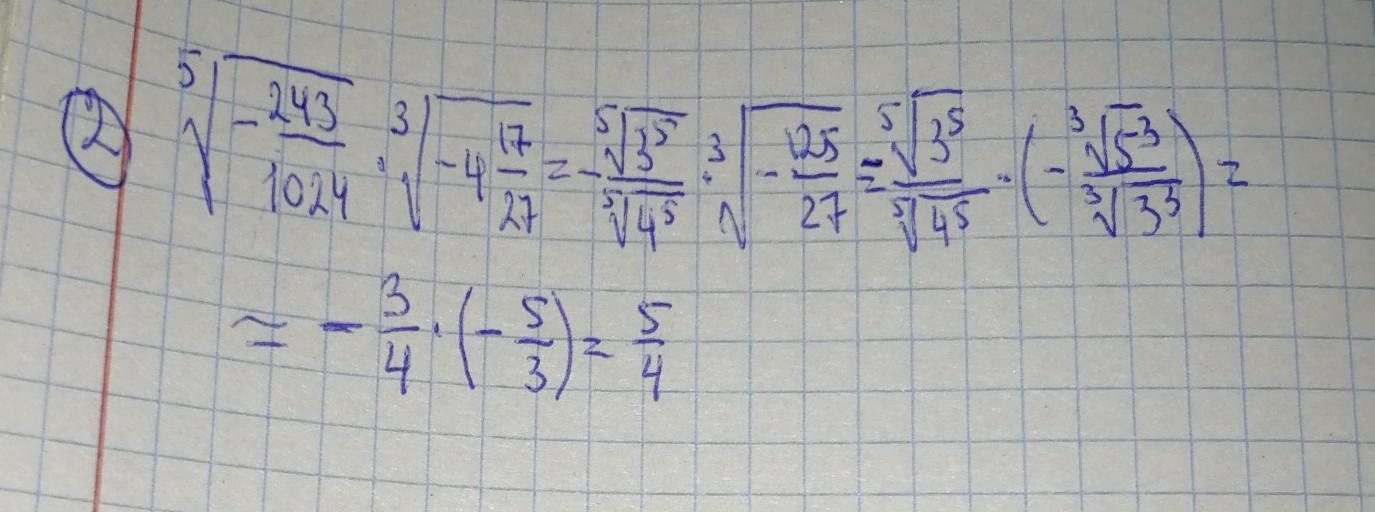 ② ⁵√(-243/1024) · ³√(-4 17/27) = - ⁵√3⁵/⁵√4⁵ · ³√(-125/27) = - ⁵√3⁵/⁵√4⁵ · (- ³√5³/³√3³) =
= - 3/4 · (- 5/3) = 5/4